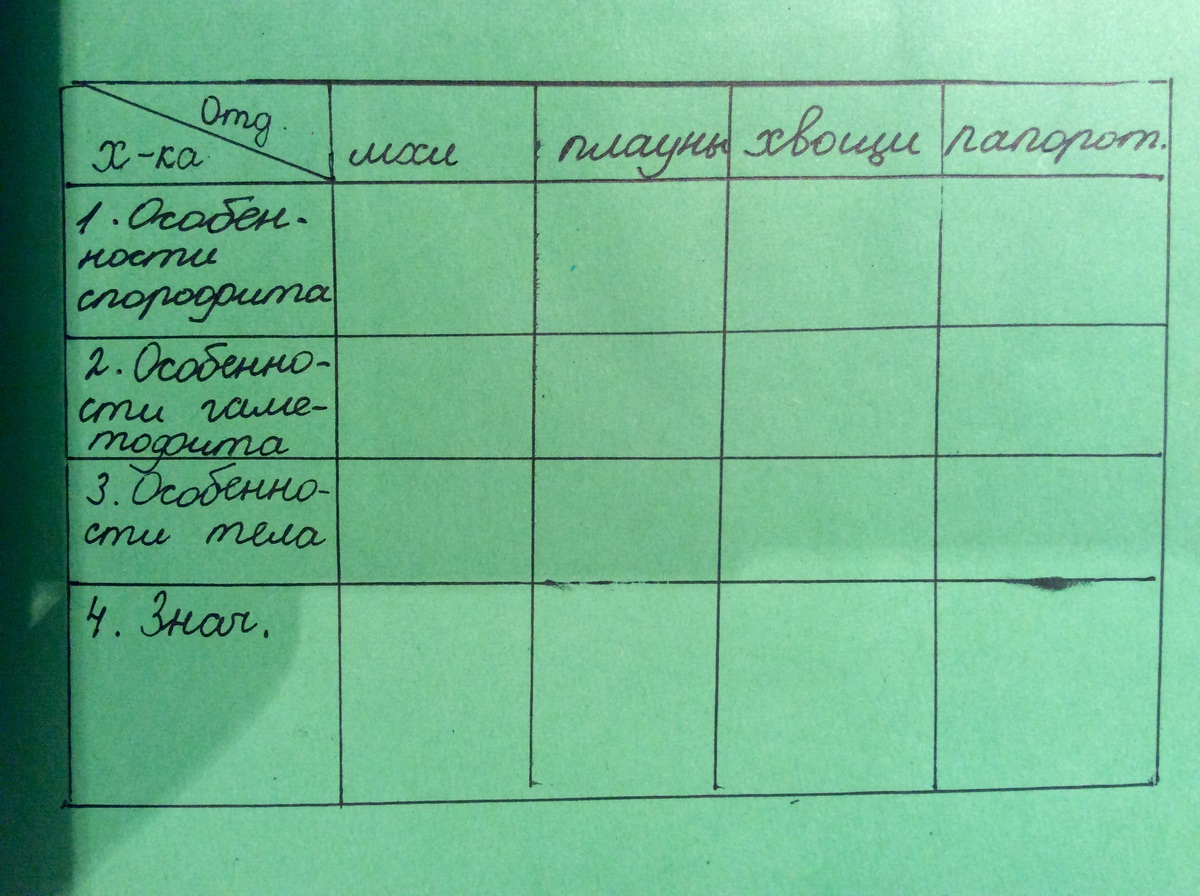 Отд.
Х-ка
мхи
плауны
хвощи
папорот.
1. Особен-
ности
спорофита
2. Особенно-
сти гаме-
тофита
3. Особенно-
сти тела
4. Знач.